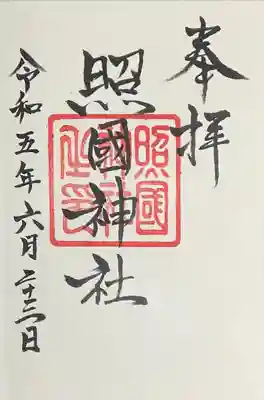 奉拝
照國神社
令和五年六月二十三日
照國神社之印